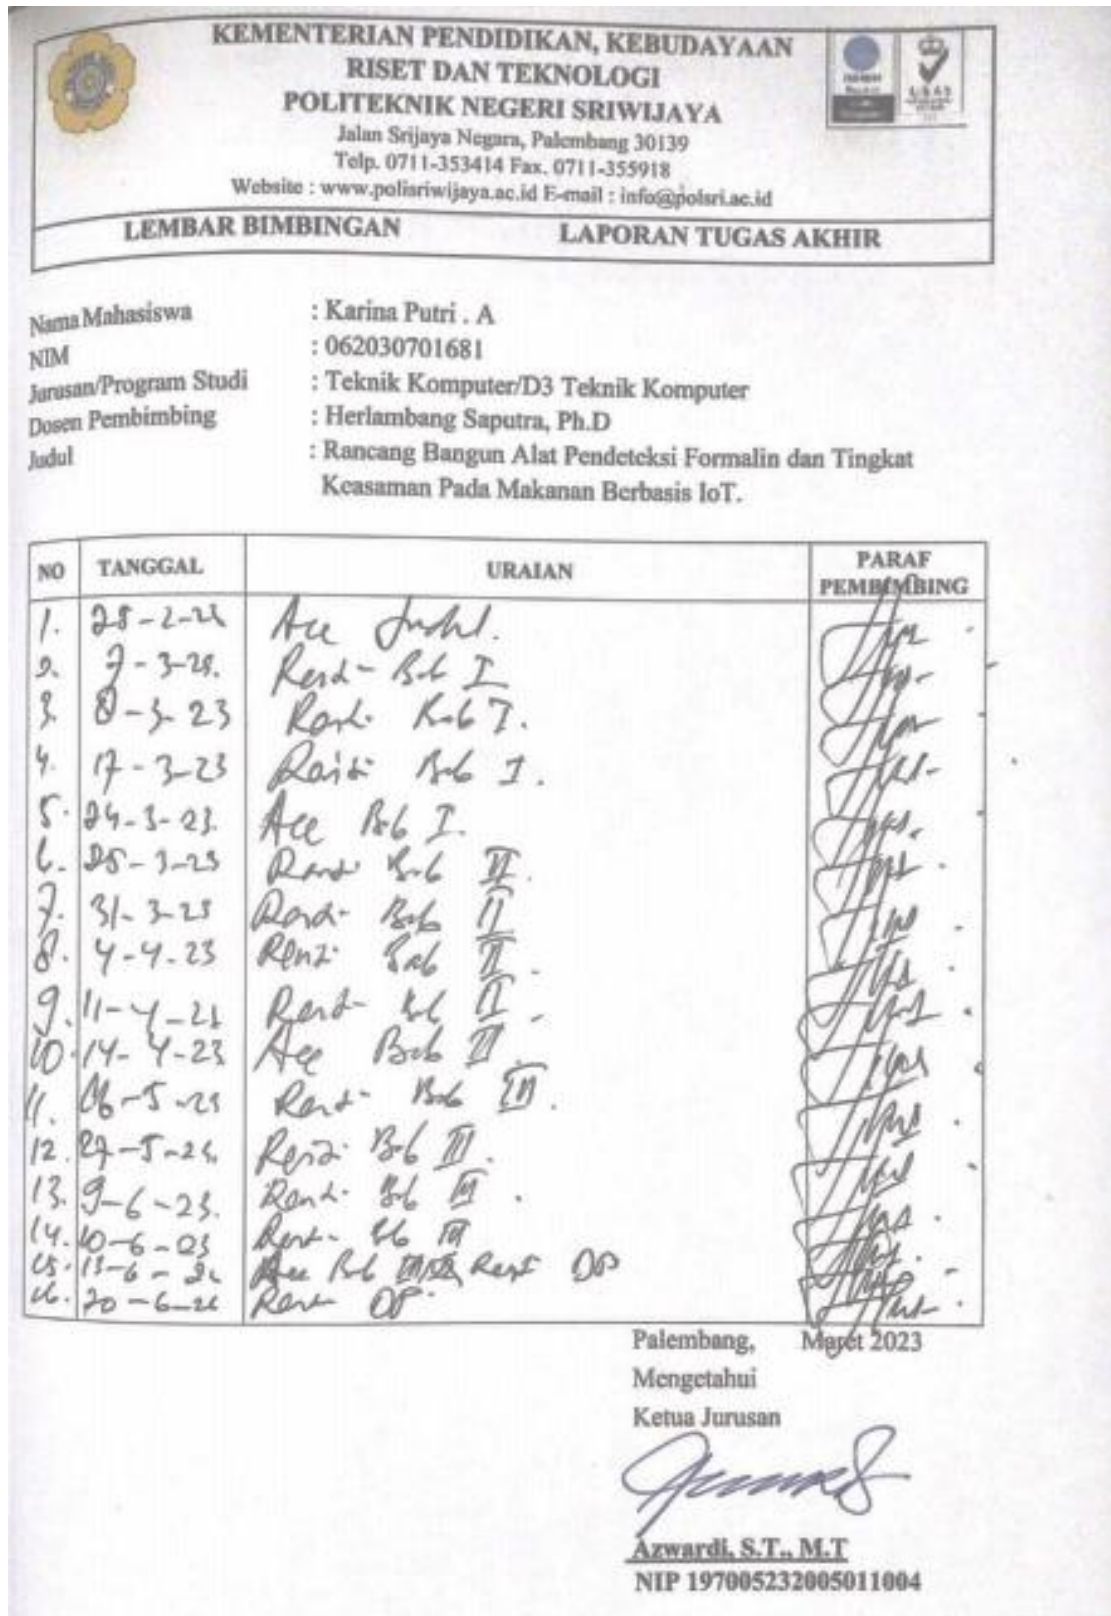 KEMENTERIAN PENDIDIKAN, KEBUDAYAAN
RISET DAN TEKNOLOGI
POLITEKNIK NEGERI SRIWIJAYA
Jalan Srijaya Negara, Palembang 30139
Telp. 0711-353414 Fax. 0711-355918
Website : www.polisriwijaya.ac.id E-mail : info@polsri.ac.id
LEMBAR BIMBINGAN LAPORAN TUGAS AKHIR
Nama Mahasiswa : Karina Putri . A
NIM : 062030701681
Jurusan/Program Studi : Teknik Komputer/D3 Teknik Komputer
Dosen Pembimbing : Herlambang Saputra, Ph.D
Judul : Rancang Bangun Alat Pendeteksi Formalin dan Tingkat
Keasaman Pada Makanan Berbasis IoT.
NO TANGGAL URAIAN PARAF
PEMBIMBING
1. Acc Judul.
2. 7-3-23. Revisi Bab I
3. 8-3-23 Revisi Bab I.
4. 17-3-23 Revisi Bab I.
5. 24-3-23. Acc Bab I.
6. 25-3-23 Revisi Bab II.
7. 31-3-23 Revisi Bab II
8. 4-4-23 Revisi Bab II.
9. 11-4-23 Revisi Bab II
10. 14-4-23 Acc Bab II.
11. Revisi Bab III.
12. 27-5-23. Revisi Bab III.
13. 9-6-23. Revisi Bab III.
14. 10-6-23 Revisi Bab III
15. Acc Bab Revisi
16. 20-6-23 Revisi
Palembang, Maret 2023
Mengetahui
Ketua Jurusan
Azwardi, S.T., M.T
NIP 197005232005011004